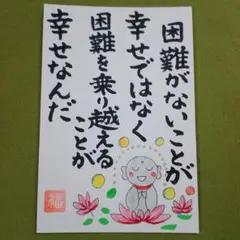 困難がないことが
幸せではなく
困難を乗り越える
ことが
幸せなんだ
福